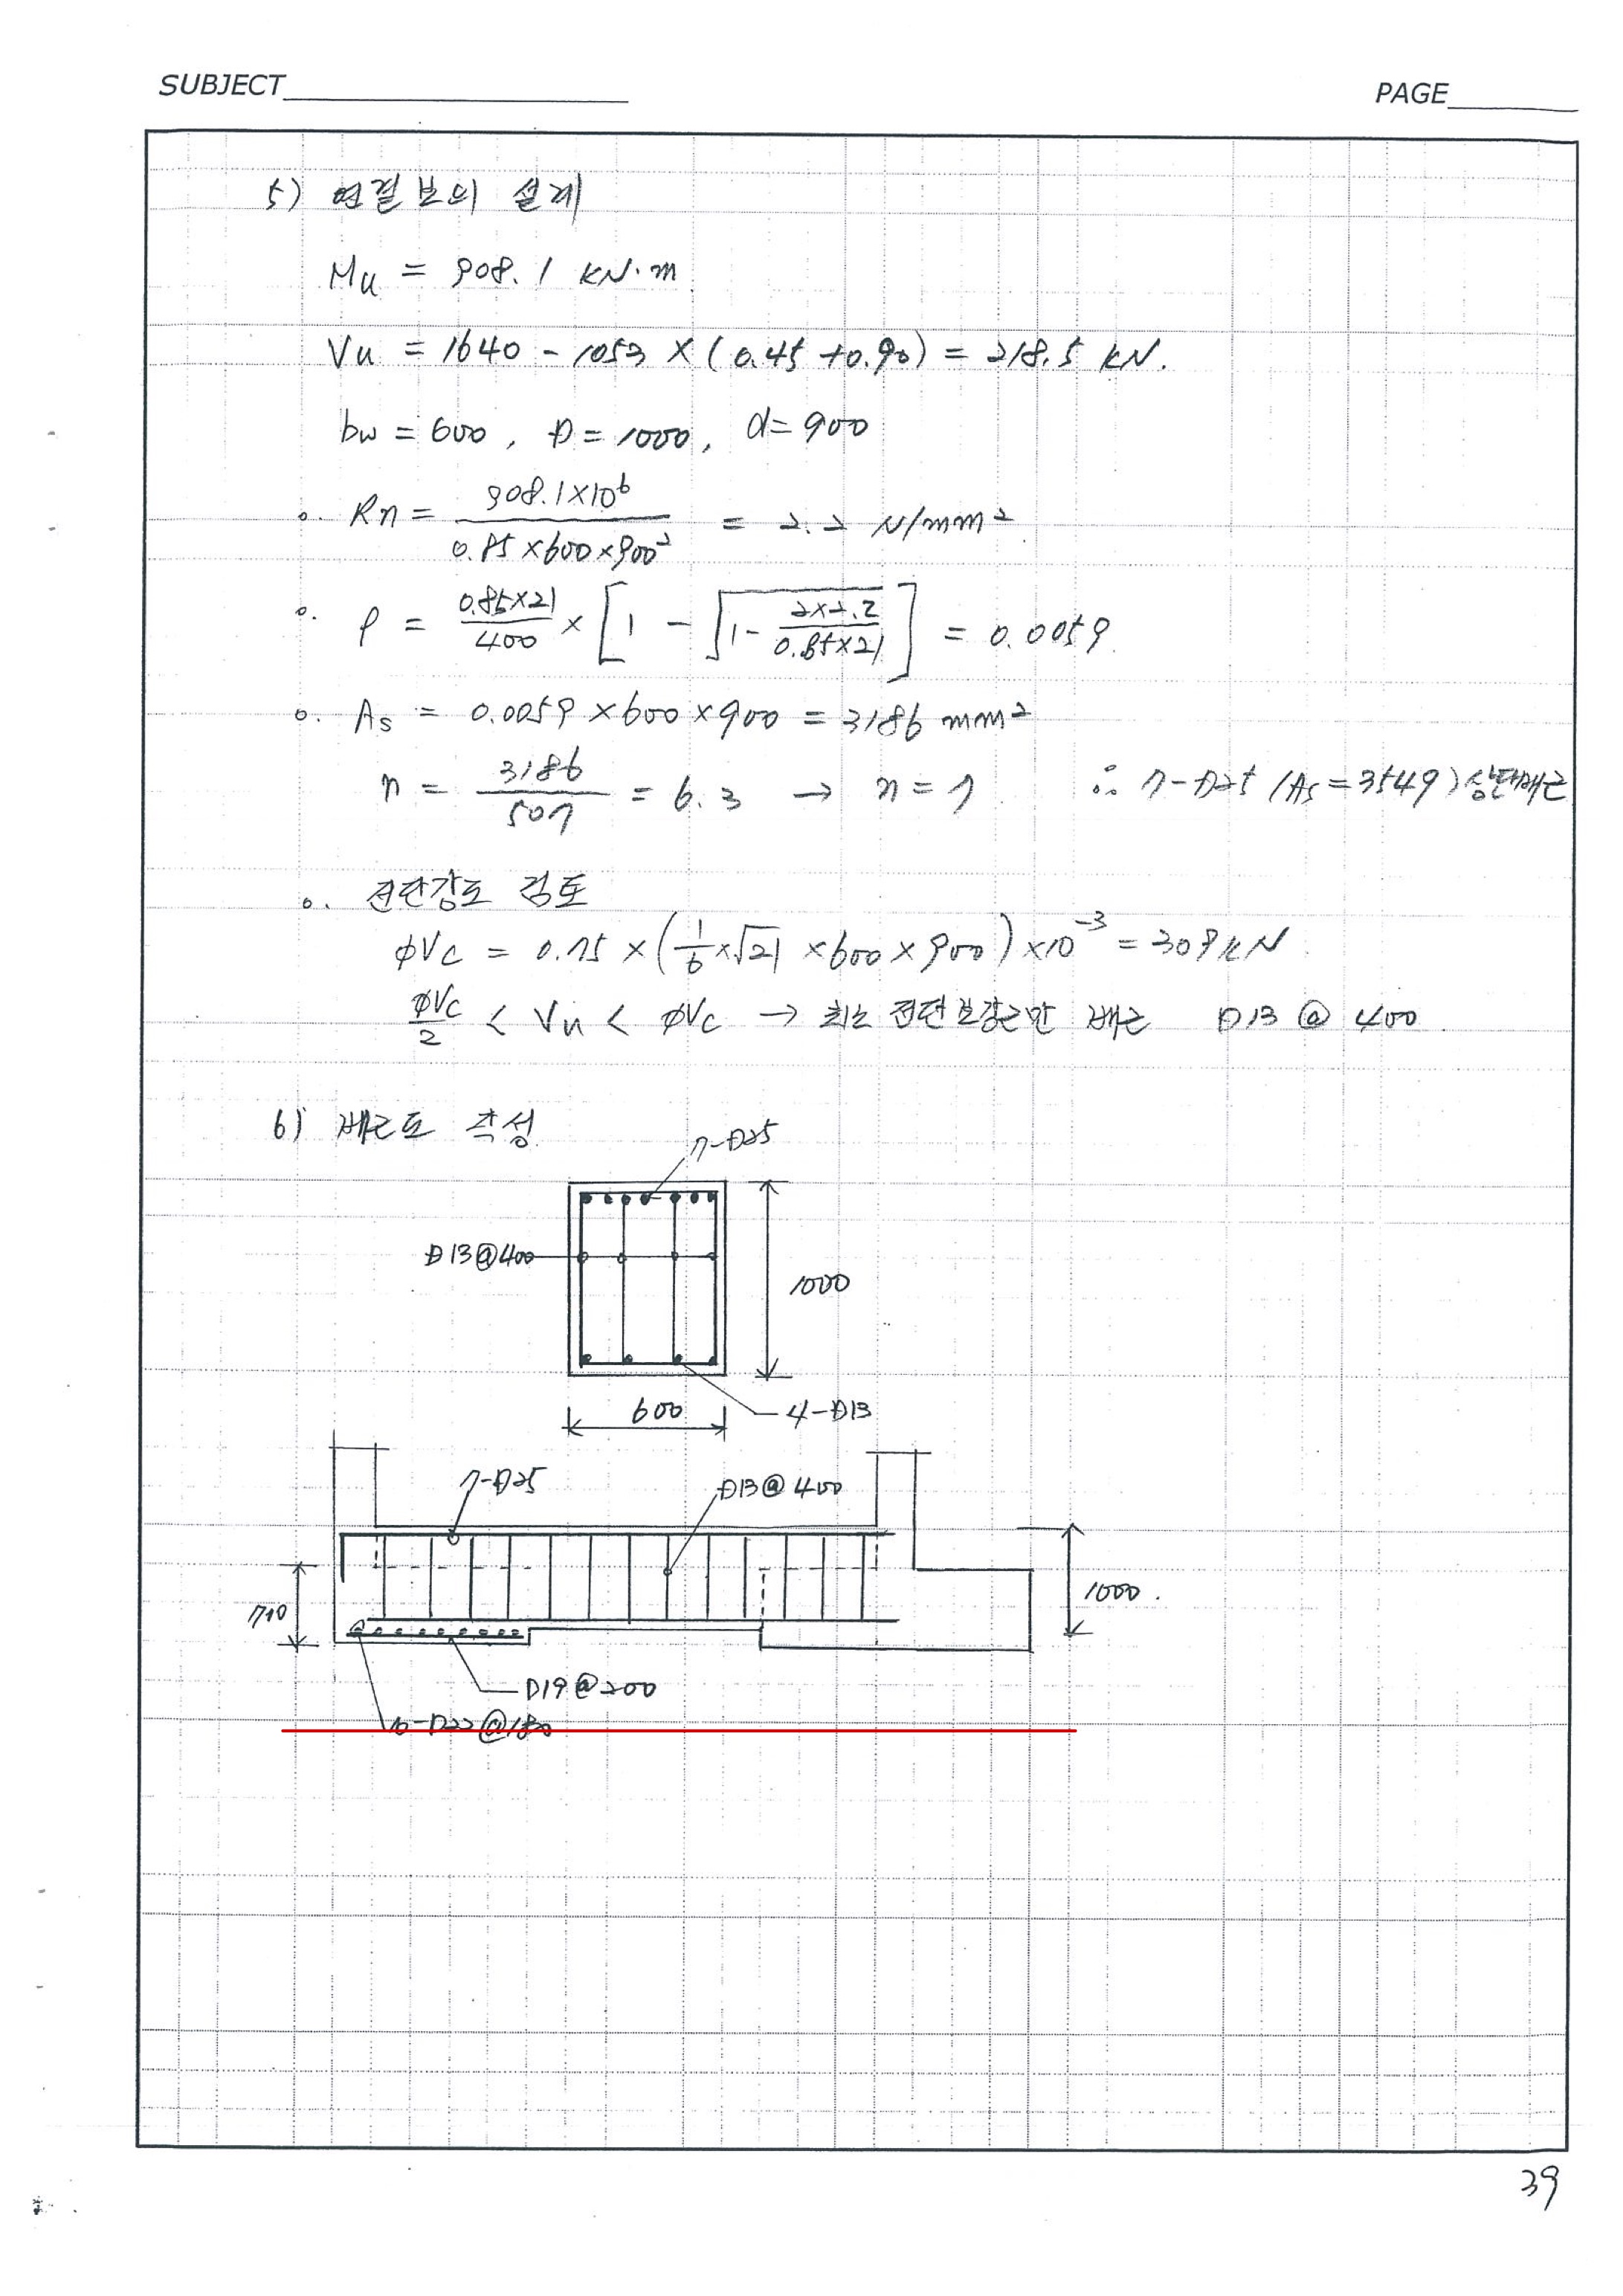 SUBJECT
PAGE
5) 연결보의 설계
Mu = 908.1 kN·m
Vu = 1640 - 1053 × (0.45 + 0.90) = 218.5 kN.
bw = 600, D = 1000, d = 900
o. Rn = 908.1×10⁶ / 0.85×600×900² = 2.2 N/mm²
o. ρ = 0.85×21 / 400 × [1 - √(1 - 2×2.2 / 0.85×21)] = 0.0059
o. As = 0.0059 × 600 × 900 = 3186 mm²
n = 3186 / 507 = 6.3 → n = 7 ∴ 7-D25 (As = 3549) 상단배근
o. 전단강도 검토
φVc = 0.75 × (1/6 × √21 × 600 × 900) × 10⁻³ = 309 kN
φVc / 2 < Vu < φVc → 최소 전단보강근만 배근 D13 @ 400.
6) 배근도 작성
7-D25
D13@400
1000
600
4-D13
7-D25
D13@400
710
1000.
D19@200
10-D22@180
39